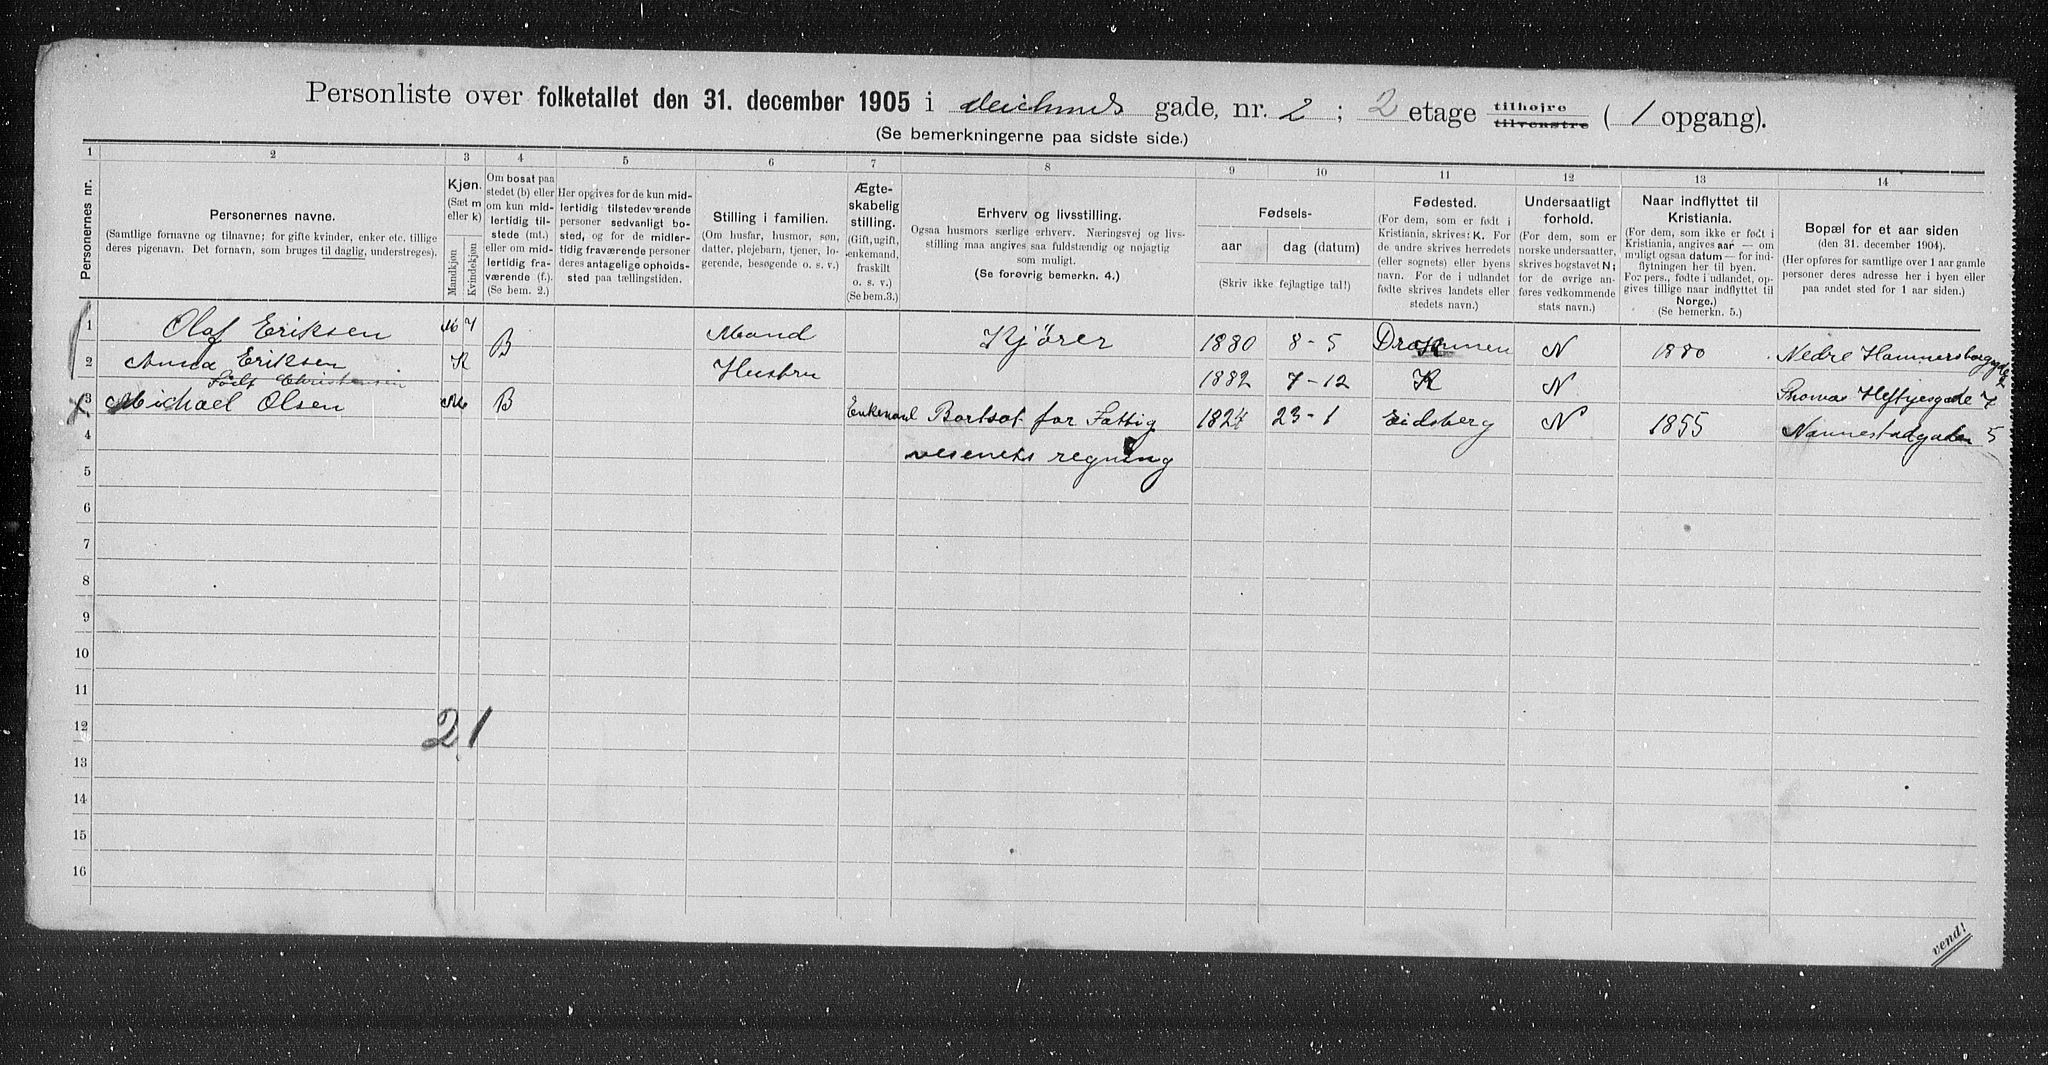 Personliste over folketallet den 31. december 1905 i Deichmds gade, nr. 2; 2 etage tilhøjre tilvenstre (1 opgang).
(Se bemerkningerne paa sidste side.)
1 2 3 4 5 6 7 8 9 10 11 12 13 14
Personernes nr.
Personernes navne.
(Samtlige fornavne og tilnavne; for gifte kvinder, enker etc. tillige
deres pigenavn. Det fornavn, som bruges til daglig, understreges).
Kjøn.
(Sæt m
eller k)
Mandkjøn
Kvindekjøn
Om bosat paa
stedet (b) eller
om kun mid-
lertidig til-
stede (mt.)
eller om mid-
lertidig fra-
værende (f.).
(Se bem. 2.)
Her opgives for de kun mid-
lertidig tilstedeværende
personer sedvanligt bo-
sted, og for de midler-
tidig fraværende personer
deres antagelige opholds-
sted paa tællingstiden.
Stilling i familien.
(Om husfar, husmor, søn,
datter, plejebarn, tjener, lo-
gerende, besøgende o. s. v.)
Ægte-
skabelig
stilling.
(Gift, ugift,
enkemand,
fraskilt
o. s. v.)
(Se bem. 3.)
Erhverv og livsstilling.
Ogsaa husmors særlige erhverv. Næringsvej og livs-
stilling maa angives saa fuldstændig og nøjagtig
som muligt.
(Se forøvrig bemerkn. 4.)
Fødsels-
aar dag (datum)
(Skriv ikke fejlagtige tal!)
Fødested.
(For dem, som er født i
Kristiania, skrives: K. For
de andre skrives herredets
(eller sognets) eller byens
navn. For de i udlandet
fødte skrives landets eller
stedets navn.)
Undersaatligt
forhold.
(For dem, som er
norske undersaatter,
skrives bogstavet N;
for de øvrige an-
føres vedkommende
stats navn.)
Naar indflyttet til
Kristiania.
(For dem, som ikke er født i
Kristiania, angives aar — om
muligt ogsaa datum — for ind-
flytningen her til byen.
For pers., fødte i udlandet, op-
gives tillige naar indflyttet til
Norge.)
(Se bemerkn. 5.)
Bopæl for et aar siden
(den 31. december 1904).
(Her opføres for samtlige over 1 aar gamle
personer deres adresse her i byen eller
paa andet sted for 1 aar siden.)
1 Olaf Eriksen M B Mand Kjører 1880 8-5 Drammen N 1880 Nedre Hammersborggade 2
2 Anna Eriksen K Hustru 1882 7-12 K N Thomas Heftyesgade 7
født Christensen
3 Michael Olsen M B Enkemand Bortsat for Fattig 1824 23-1 Eidsberg N 1855 Nannestadgaden 5
4 vesenets regning
5
6
7
8
9
10
11
12 21
13
14
15
16
vend!